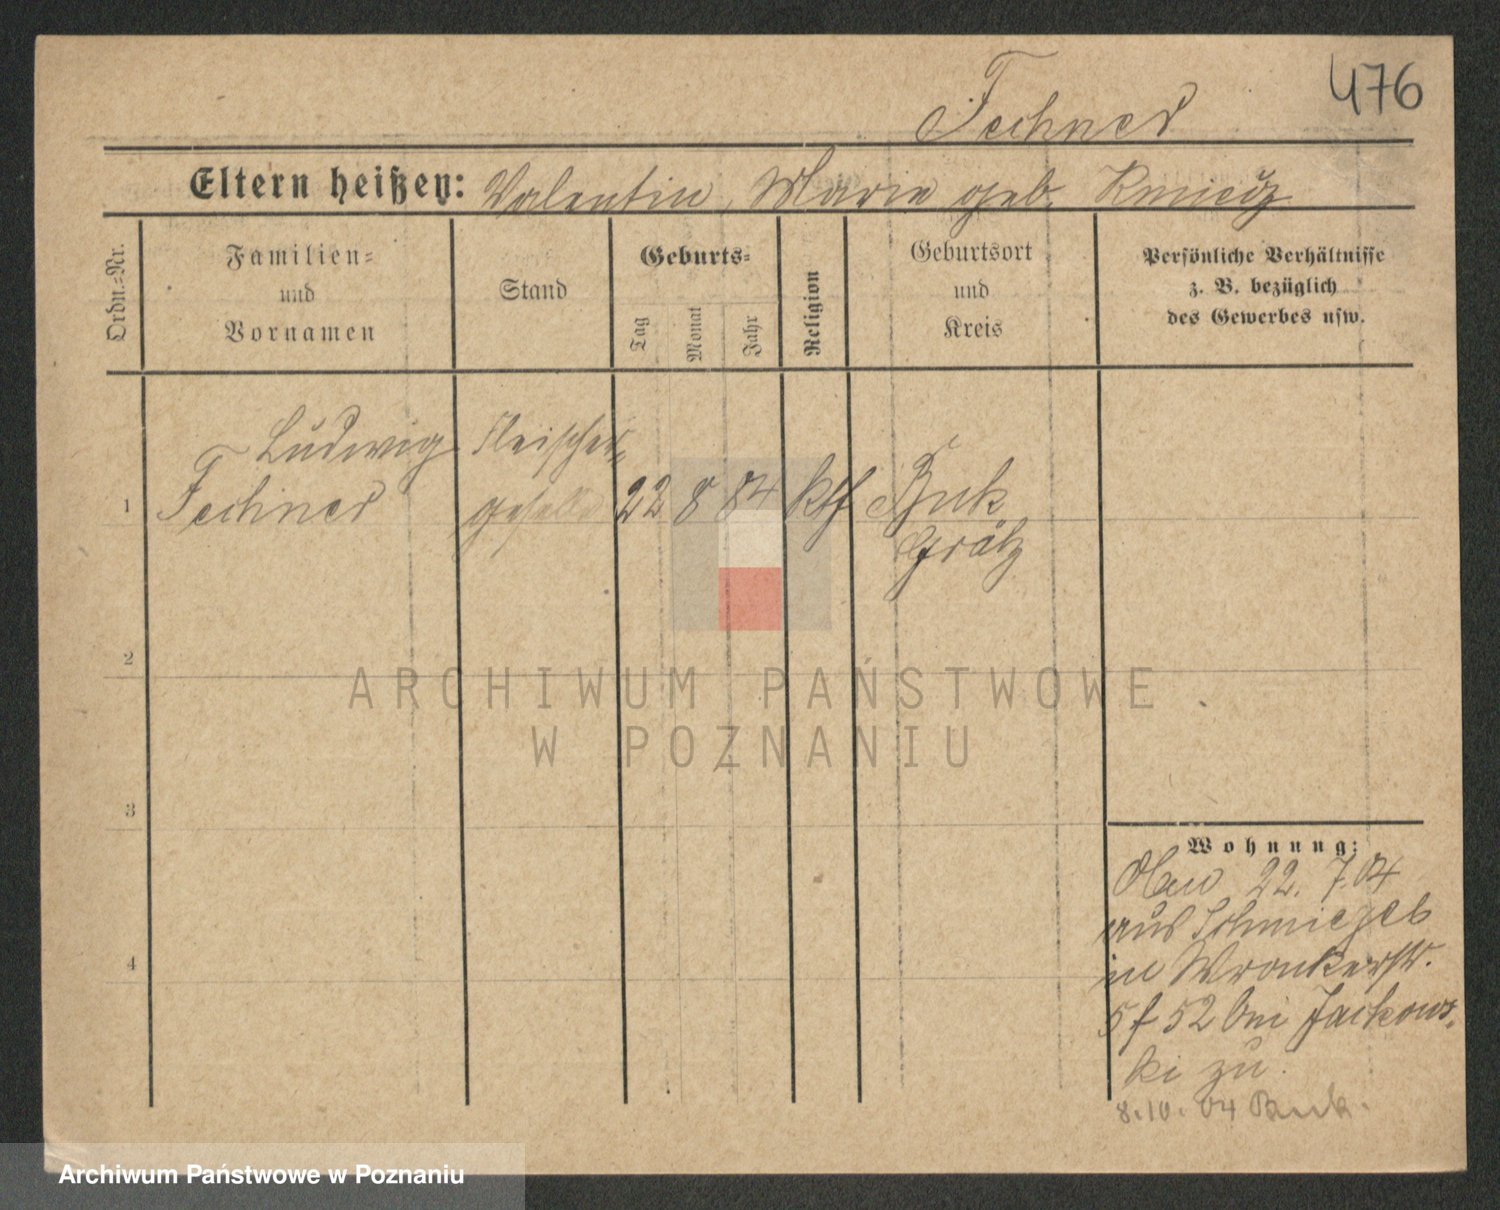 476
Fechner
Eltern heißen: Valentin, Marie geb. Kmiecz
Ordn.=Nr.
Familien=
und
Vornamen
Stand
Geburts=
Tag
Monat
Jahr
Religion
Geburtsort
und
Kreis
Persönliche Verhältnisse
z. B. bezüglich
des Gewerbes usw.
Ludwig Fleischer=
1 Fechner geselle 22 8 84 kth Buk
Grätz
2
ARCHIWUM PAŃSTWOWE
W POZNANIU
3
4
Wohnung:
22. 7. 04
aus Schmiegel
in Wronkerstr.
5 f 52 bei Jackows=
ki zu.
8.10.04 Buk.
Archiwum Państwowe w Poznaniu